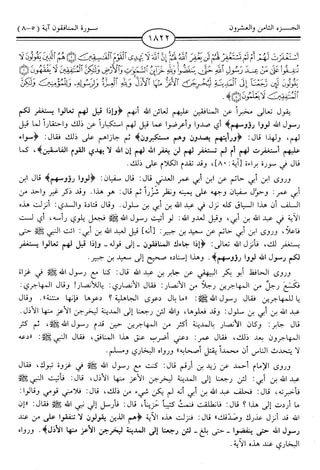 الجـــزء الثامن والعشرون
١٨٢٢
سورة المنافقون آية (٥-٨)
أَسْتَغْفَرْتَ لَهُمْ أَمْ لَمْ تَسْتَغْفِرْ لَهُمْ لَن يَغْفِرَ اللَّهُ لَهُمْ إِنَّ اللَّهَ لَا يَهْدِي الْقَوْمَ الْفَاسِقِينَ ۝ هُمُ الَّذِينَ يَقُولُونَ لَا
تُنفِقُوا عَلَىٰ مَنْ عِندَ رَسُولِ اللَّهِ حَتَّىٰ يَنفَضُّوا وَلِلَّهِ خَزَائِنُ السَّمَاوَاتِ وَالْأَرْضِ وَلَٰكِنَّ الْمُنَافِقِينَ لَا يَفْقَهُونَ ۝
يَقُولُونَ لَئِن رَّجَعْنَا إِلَى الْمَدِينَةِ لَيُخْرِجَنَّ الْأَعَزُّ مِنْهَا الْأَذَلَّ وَلِلَّهِ الْعِزَّةُ وَلِرَسُولِهِ وَلِلْمُؤْمِنِينَ وَلَٰكِنَّ الْمُنَافِقِينَ لَا
يَعْلَمُونَ ۝﴾.
يقول تعالى مخبراً عن المنافقين عليهم لعائن الله أنهم ﴿وإذا قيل لهم تعالوا يستغفر لكم
رسول الله لووا رؤوسهم﴾ أي صدوا وأعرضوا عما قيل لهم استكباراً عن ذلك واحتقاراً لما قيل
لهم، ولهذا قال: ﴿ورأيتهم يصدون وهم مستكبرون﴾ ثم جازاهم على ذلك فقال: ﴿سواء
عليهم أستغفرت لهم أم لم تستغفر لهم لن يغفر الله لهم إن الله لا يهدي القوم الفاسقين﴾، كما
قال في سورة براءة [آية: ٨٠]، وقد تقدم الكلام على ذلك.
وروى ابن أبي حاتم عن ابن أبي عمر العدني قال: قال سفيان: ﴿لووا رؤوسهم﴾ قال ابن
أبي عمر: وحوّل سفيان وجهه على يمينه ونظر شزراً ثم قال: هو هذا. وقد ذكر غير واحد من
السلف أن هذا السياق كله نزل في عبد الله بن أبي بن سلول. وقال قتادة والسدي: أنزلت هذه
الآية في عبد الله بن أبي، وقيل لعدو الله: لو أتيت رسول الله ﷺ فجعل يلوي رأسه، أي لست
فاعلاً، وروى ابن أبي حاتم عن سعيد بن جبير: [أنه] قيل لعبد الله بن أبي: ائت النبي ﷺ حتى
يستغفر لك، فأنزل الله تعالى: ﴿إذا جاءك المنافقون ـ إلى قوله ـ وإذا قيل لهم تعالوا يستغفر
لكم رسول الله لووا رؤوسهم﴾. وهذا إسناده صحيح إلى سعيد بن جبير.
وروى الحافظ أبو بكر البيهقي عن جابر بن عبد الله قال: كنا مع رسول الله ﷺ في غزاة
فكَسَعَ رجلٌ من المهاجرين رجلاً من الأنصار: فقال الأنصاري: ياللأنصار! وقال المهاجري:
يا للمهاجرين فقال رسول الله ﷺ: «ما بال دعوى الجاهلية ؟ دعوها فإنها منتنة». وقال
عبد الله بن أبي بن سلول: وقد فعلوها، والله لئن رجعنا إلى المدينة ليخرجن الأعز منها الأذل.
قال جابر: وكان الأنصار بالمدينة أكثر من المهاجرين حين قدم رسول الله ﷺ، ثم كثر
المهاجرون بعد ذلك، فقال عمر: دعني أضرب عنق هذا المنافق، فقال النبي ﷺ: «دعه
لا يتحدث الناس أن محمداً يقتل أصحابه» ورواه البخاري ومسلم.
وروى الإمام أحمد عن زيد بن أرقم قال: كنت مع رسول الله ﷺ في غزوة تبوك، فقال
عبد الله بن أبي: لئن رجعنا إلى المدينة ليخرجن الأعز منها الأذل، قال: فأتيت النبي ﷺ
فأخبرته، قال: فحلف عبد الله بن أبي أنه لم يكن شيء من ذلك، قال: فلامني قومي وقالوا:
ما أردت إلى هذا ؟ قال: فانطلقت فنمت كئيباً حزيناً، قال: فأرسل إلي نبي الله ﷺ فقال: «إن
الله قد أنزل عذرك وصدّقك» قال: فنزلت هذه الآية ﴿هم الذين يقولون لا تنفقوا على من عند
رسول الله حتى ينفضوا ـ حتى بلغ ـ لئن رجعنا إلى المدينة ليخرجن الأعز منها الأذل﴾. ورواه
البخاري عند هذه الآية.